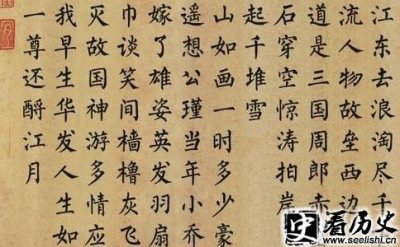 江东去浪淘尽千
流人物故垒西边
道是三国周郎赤
石穿空惊涛拍岸
起千堆雪
山如画一时多少豪
遥想公瑾当年小乔
嫁了雄姿英发羽扇
巾谈笑间樯橹灰飞
灭故国神游多情应
我早生华发人生如
一尊还酹江月
看历史
www.seelishi.cn